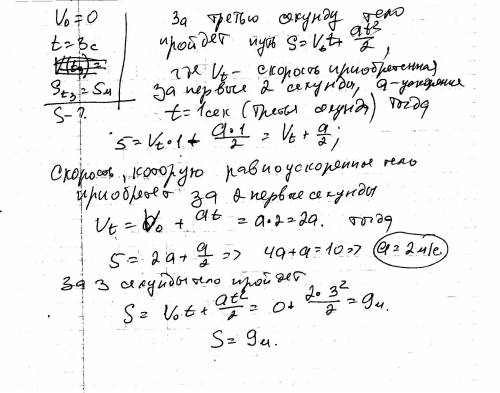 V₀ = 0
t = 3с
S_t₃ = 5м
S - ?
За третью секунду тело
пройдет путь S = V_t t + at²/2,
где V_t - скорость приобретенная
за первые 2 секунды, a - ускорение
t = 1сек (третья секунда) тогда
5 = V_t·1 + a·1/2 = V_t + a/2;
Скорость, которую равноускоренное тело
приобретет за 2 первые секунды
V_t = V₀ + at = a·2 = 2a. тогда
5 = 2a + a/2 => 4a + a = 10 => a = 2м/с
За 3 секунды тело пройдет
S = V₀t + at²/2 = 0 + 2·3²/2 = 9м.
S = 9м.